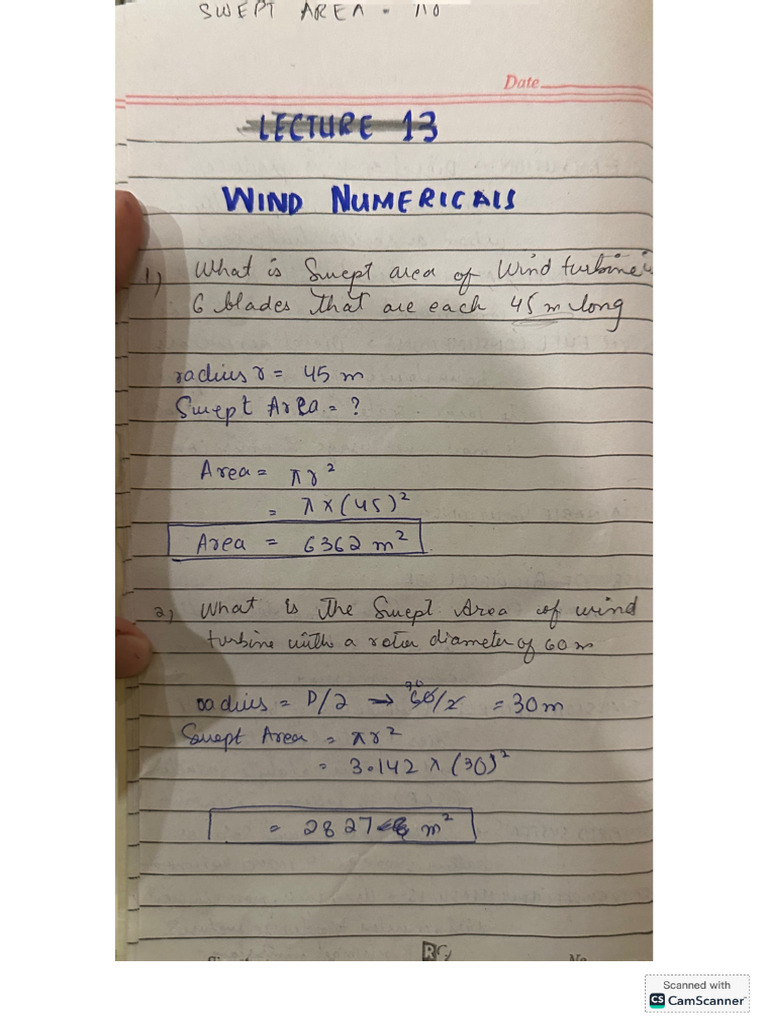 SWEPT AREA =
Date
LECTURE 13
WIND NUMERICALS
1) What is Swept area of Wind turbine
6 blades that are each 45 m long
radius r = 45 m
Swept Area = ?
Area = πr²
= π x (45)²
Area = 6362 m²
2) What is the Swept Area of wind
turbine with a rotor diameter of 60 m
radius = D/2 → 60/2 = 30m
30
Swept Area = πr²
= 3.142 x (30)²
= 2827 m²
Scanned with
CS CamScanner